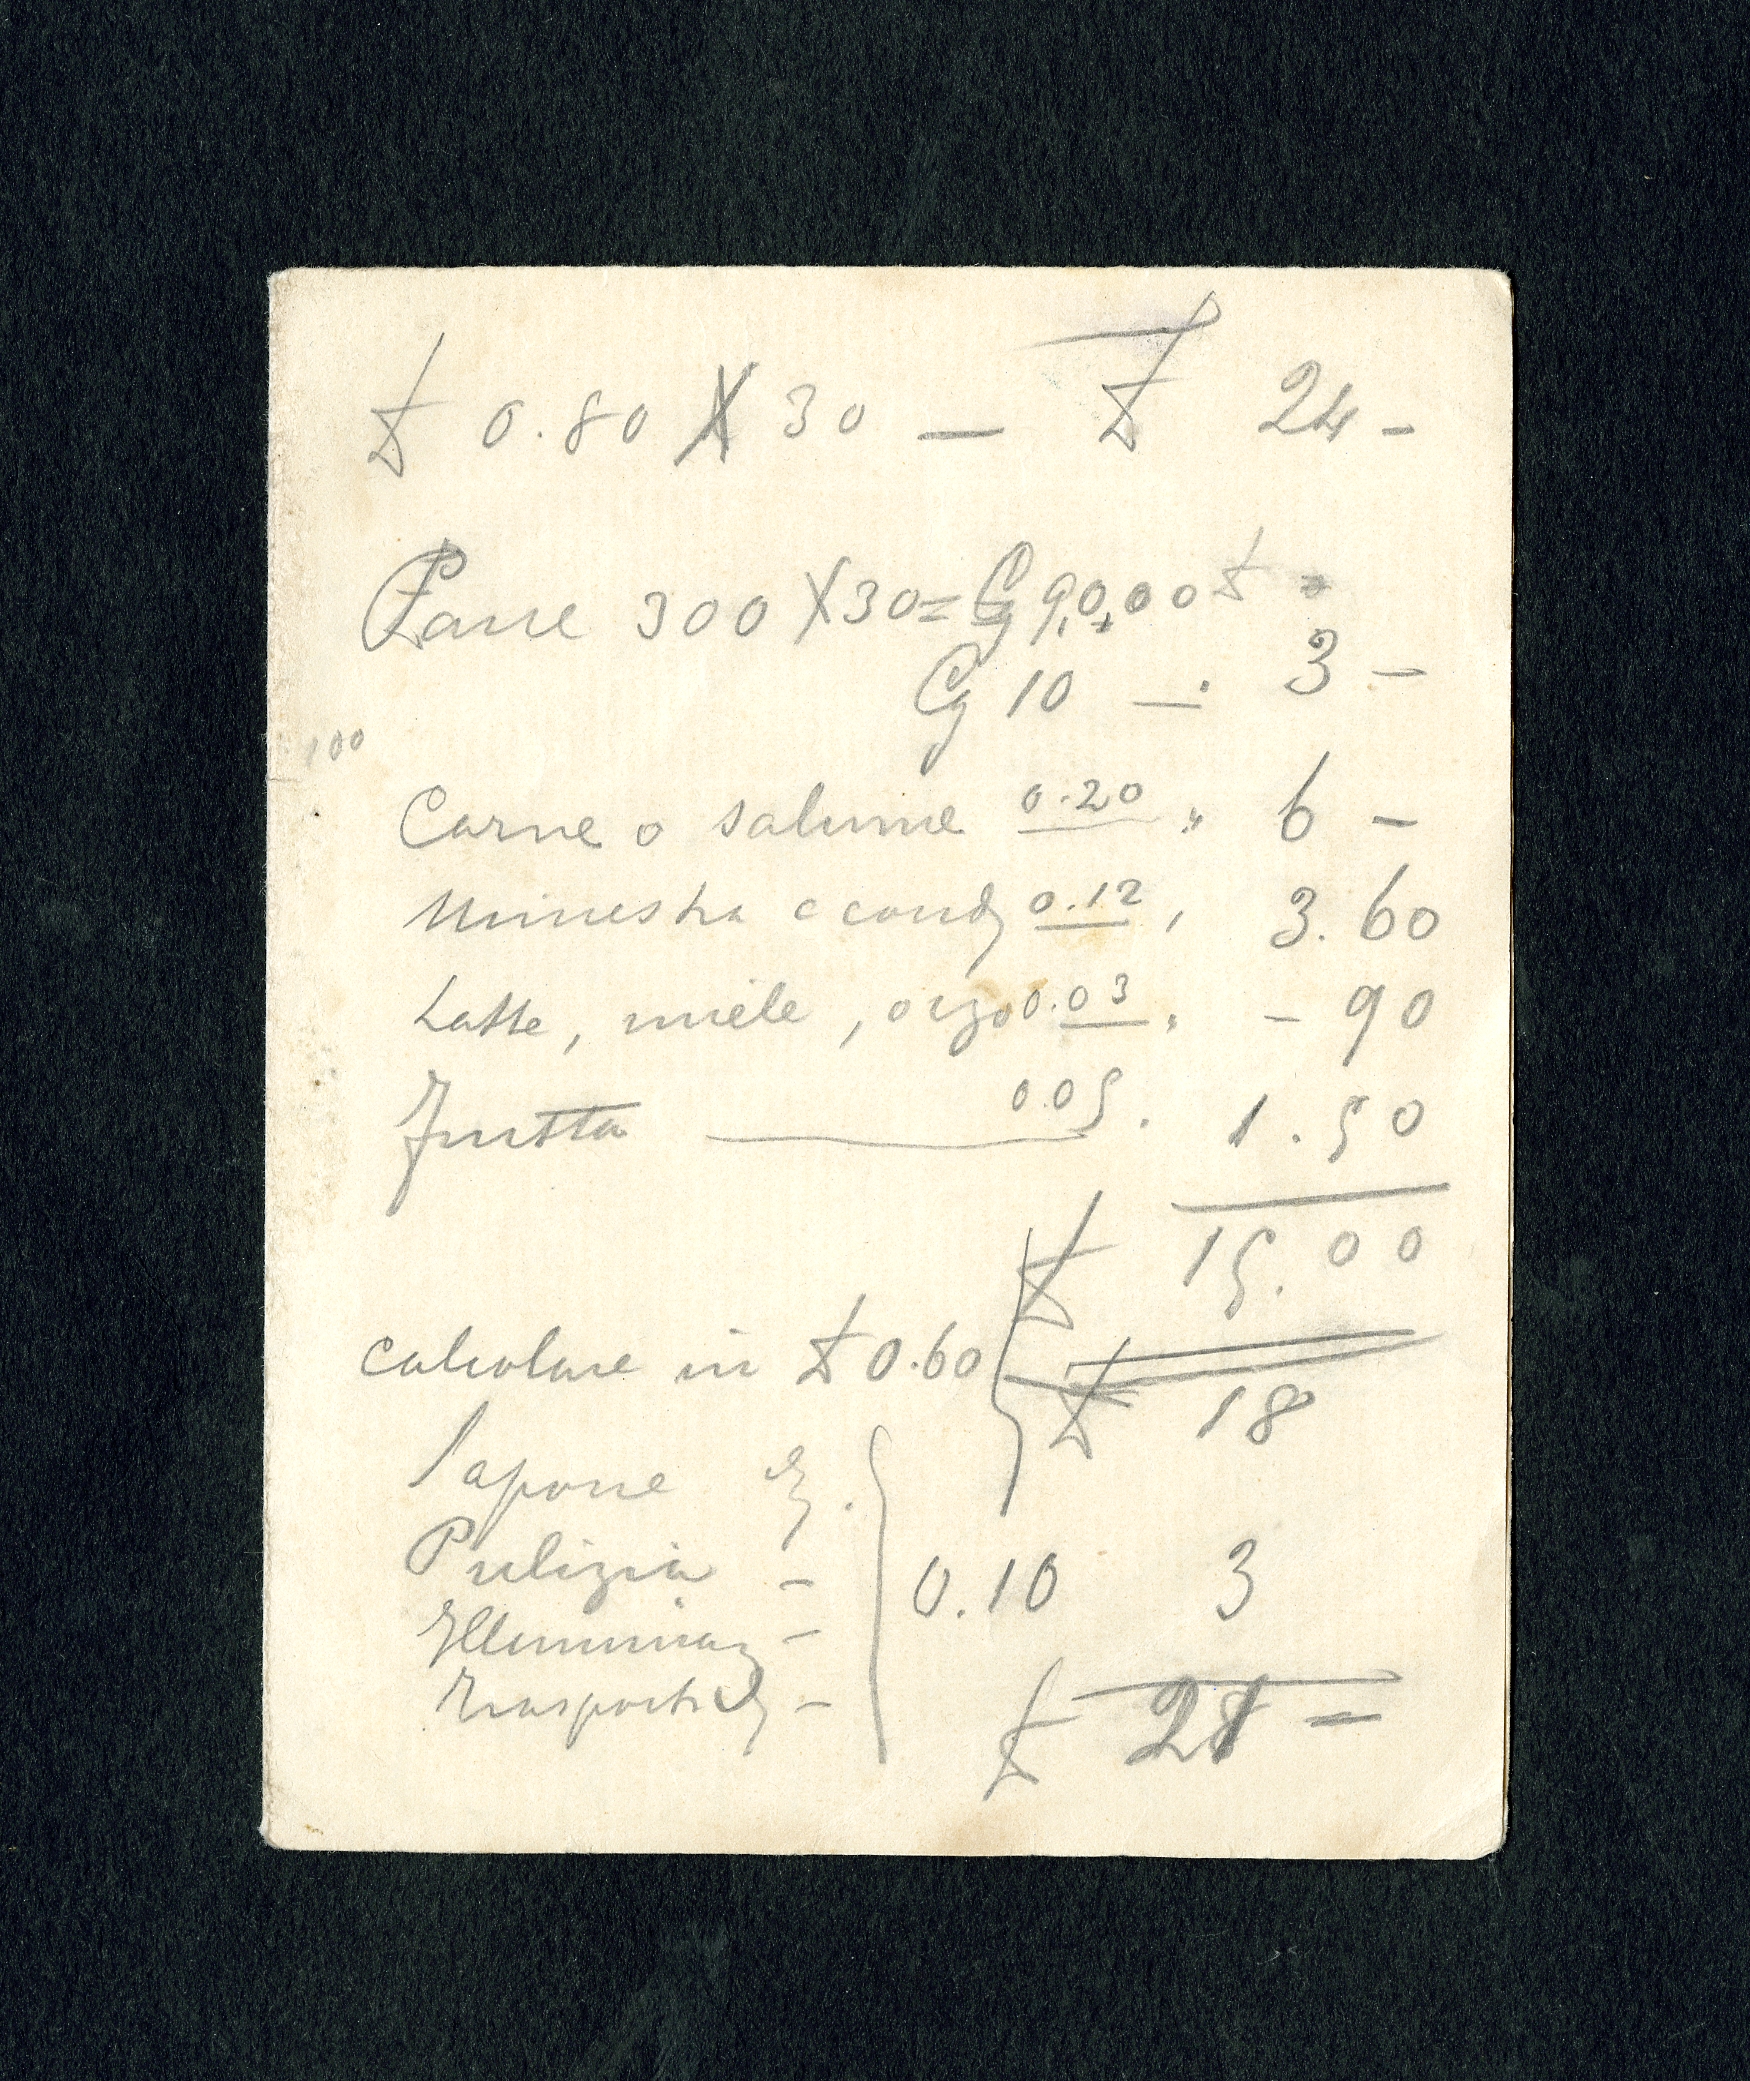 £ 0.80 X 30 — £ 24 -
Pane 300 X 30 = Cg 9,0,00 £
Cg 10 — . 3 -
100
Carne o salume 0.20 " 6 -
Minestra e cond 0.12 , 3.60
Latte, miele, orzo 0.03 " - 90
Frutta — 0.05 . 1.50
£ 15.00
calcolare in £ 0.60 £ 18
Sapone
Pulizia - 0.10 3
Illuminaz -
Trasporti -
£ 21 =